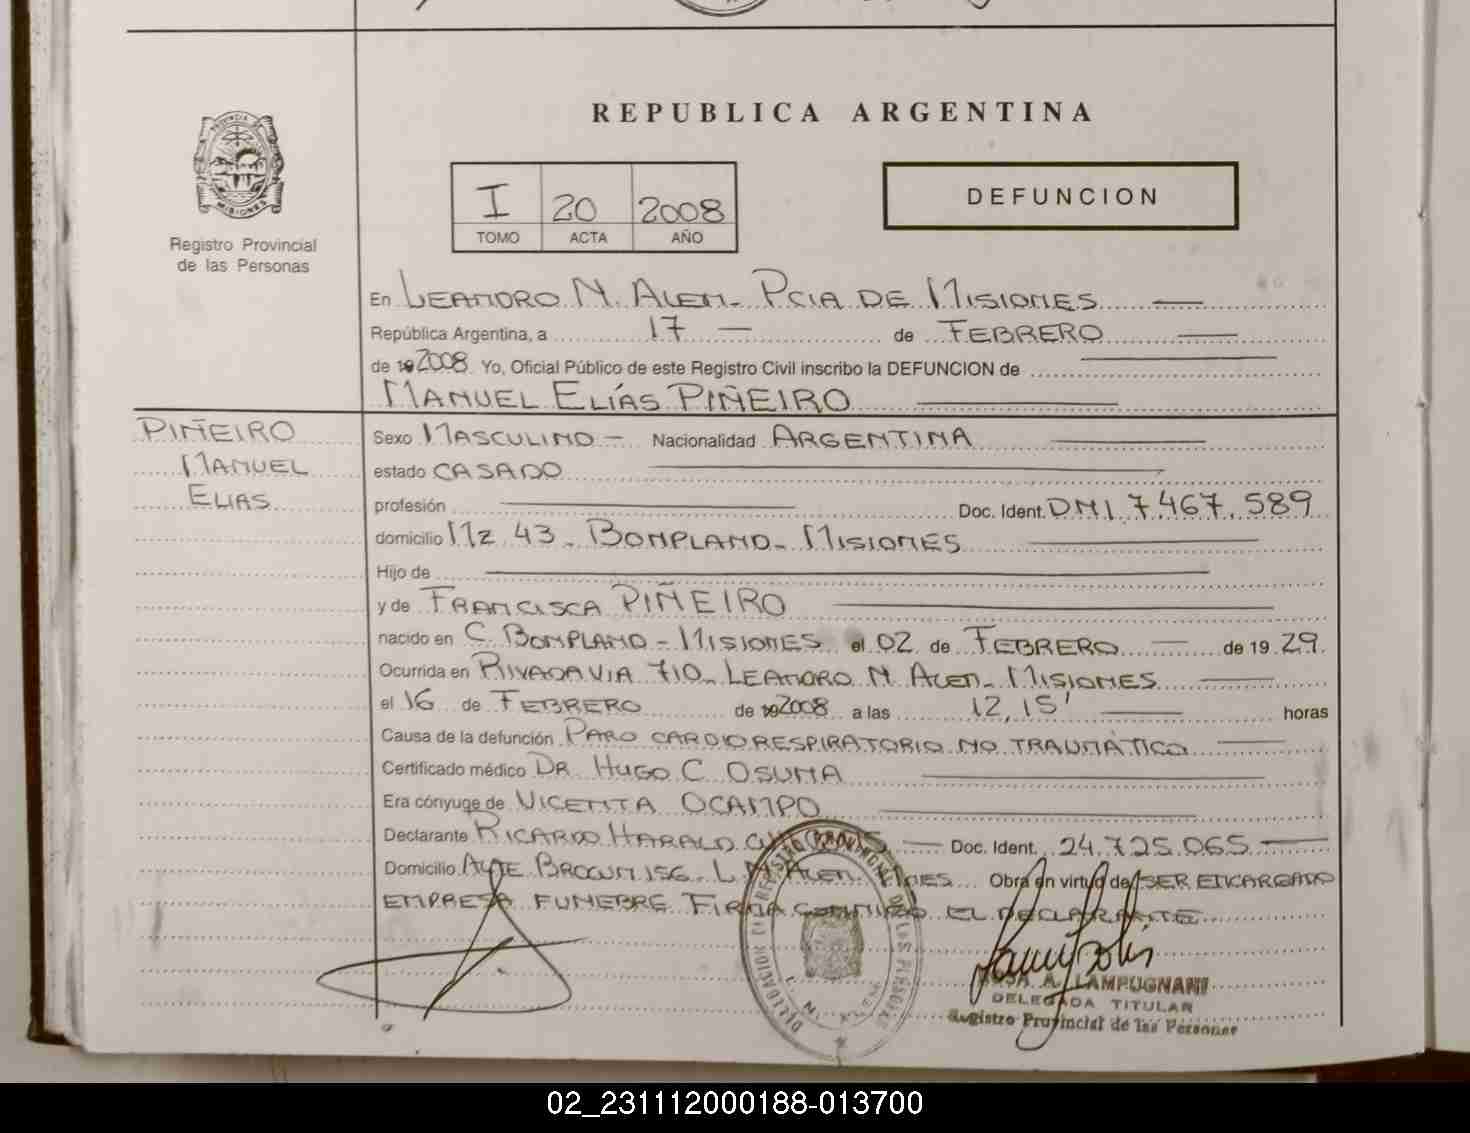 REPUBLICA ARGENTINA
PROVINCIA DE
MISIONES
Registro Provincial
de las Personas
I 20 2008
TOMO ACTA AÑO
DEFUNCION
En LEANDRO N. ALEM - PCIA DE MISIONES
República Argentina, a 17 de FEBRERO
de 2008 Yo, Oficial Público de este Registro Civil inscribo la DEFUNCION de
MANUEL ELÍAS PIÑEIRO
PIÑEIRO
MANUEL
ELIAS
Sexo MASCULINO - Nacionalidad ARGENTINA
estado CASADO
profesión Doc. Ident. DNI 7.467.589
domicilio Mz 43 - BONPLAND - MISIONES
Hijo de
y de FRANCISCA PIÑEIRO
nacido en C. BONPLAND - MISIONES el 02 de FEBRERO de 1929
Ocurrida en RIVADAVIA 710 - LEANDRO N ALEM - MISIONES
el 16 de FEBRERO de 2008 a las 12,15' horas
Causa de la defunción PARO CARDIORESPIRATORIO NO TRAUMÁTICO
Certificado médico DR HUGO C. OSUNA
Era cónyuge de VICENTA OCAMPO
Declarante RICARDO HARALD Doc. Ident. 24.725.065
Domicilio ALTE BROWN 156 - L. N. ALEM - Obra en virtud de SER ENCARGADO
EMPRESA FUNEBRE FIRMA CONMIGO EL DECLARANTE
DELEGACION REGISTRO PROVINCIAL DE LAS PERSONAS
L. N. ALEM
A. LAMPUGNANI
DELEGADA TITULAR
Registro Provincial de las Personas
02_231112000188-013700